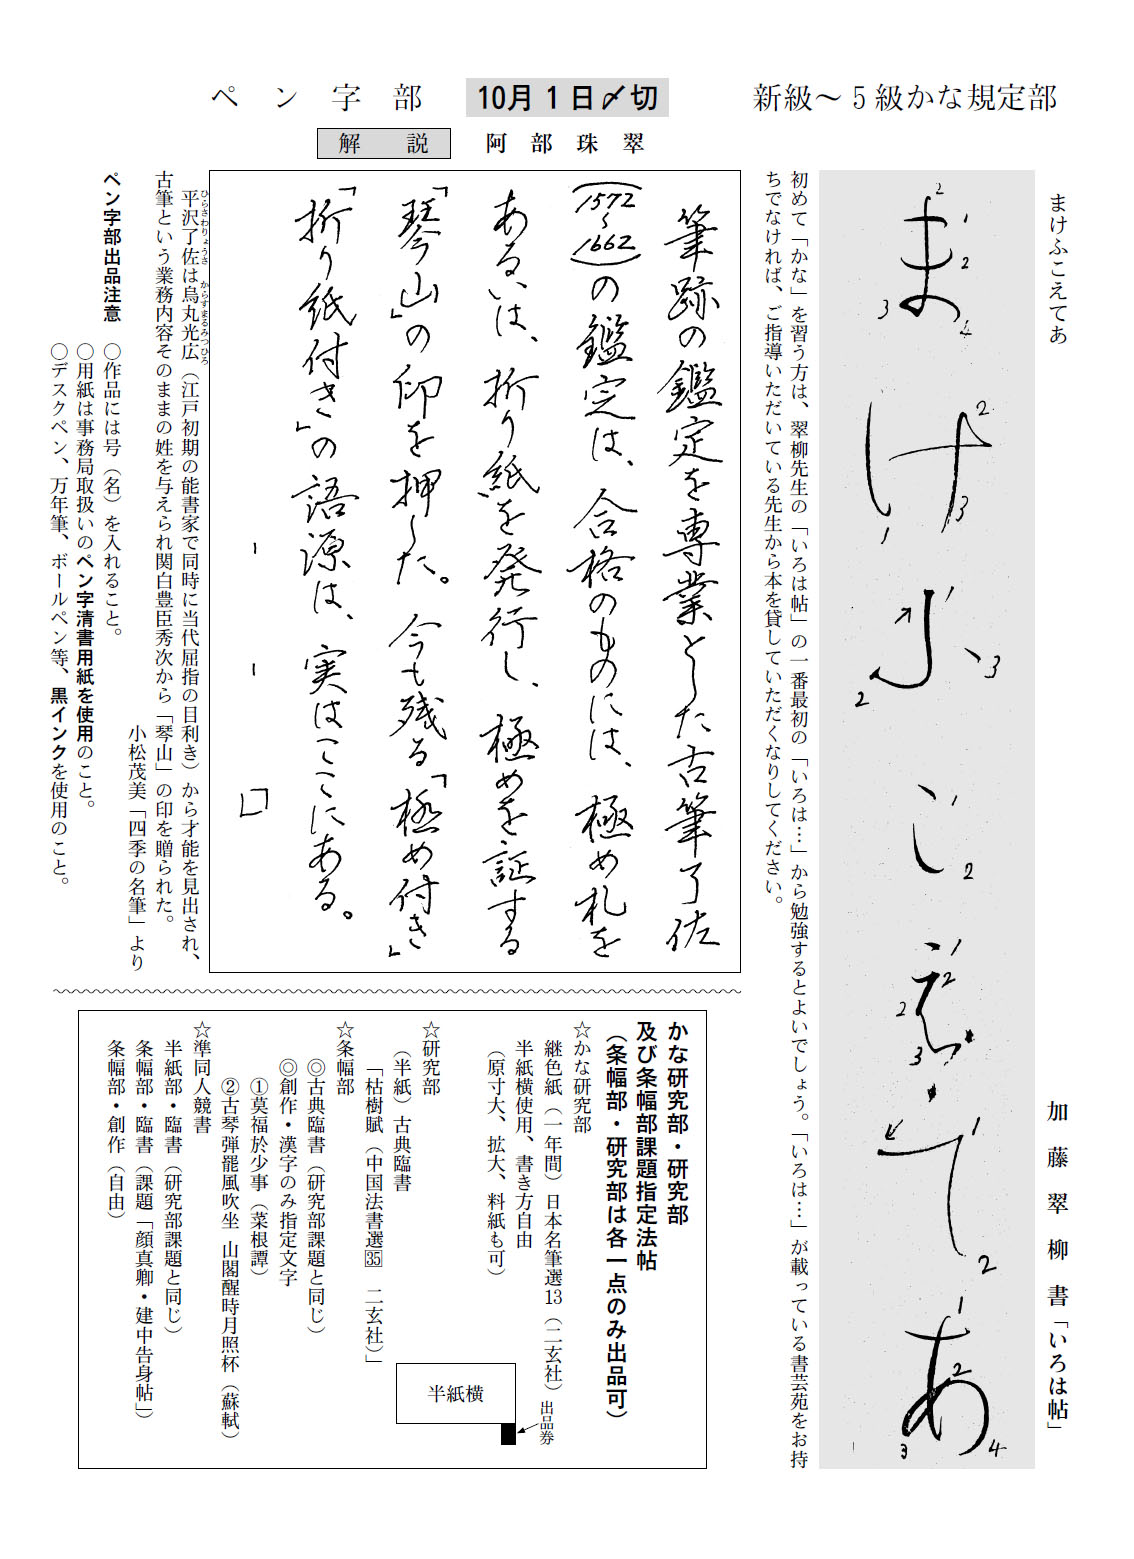 新級～5級かな規定部
まけふこえてあ
加藤翠柳書「いろは帖」
まけふこえてあ
初めて「かな」を習う方は、翠柳先生の「いろは帖」の一番最初の「いろは…」から勉強するとよいでしょう。「いろは…」が載っている書芸苑をお持
ちでなければ、ご指導いただいている先生から本を貸していただくなりしてください。
ペン字部
10月1日〆切
解説
阿部珠翠
筆跡の鑑定を専業とした古筆了佐
(1572～1662)の鑑定は、合格のものには、極め札を
あるいは、折り紙を発行し、極めを証する
「琴山」の印を押した。今も残る「極め付き」
「折り紙付き」の語源は、実はここにある。
平沢了佐は烏丸光広（江戸初期の能書家で同時に当代屈指の目利き）から才能を見出され、
ひらさわりょうさ からすまるみつひろ
古筆という業務内容そのままの姓を与えられ関白豊臣秀次から「琴山」の印を贈られた。
小松茂美「四季の名筆」より
ペン字部出品注意
○作品には号（名）を入れること。
○用紙は事務局取扱いのペン字清書用紙を使用のこと。
○デスクペン、万年筆、ボールペン等、黒インクを使用のこと。
かな研究部・研究部
及び条幅部課題指定法帖
（条幅部・研究部は各一点のみ出品可）
☆かな研究部
継色紙（一年間）日本名筆選13（二玄社）
半紙横使用、書き方自由
（原寸大、拡大、料紙も可）
半紙横
出品券
☆研究部
（半紙）古典臨書
「枯樹賦（中国法書選35 二玄社）」
☆条幅部
◎古典臨書（研究部課題と同じ）
◎創作・漢字のみ指定文字
①莫福於少事（菜根譚）
②古琴弾罷風吹坐 山閣醒時月照杯（蘇軾）
☆準同人競書
半紙部・臨書（研究部課題と同じ）
条幅部・臨書（課題「顔真卿・建中告身帖」）
条幅部・創作（自由）